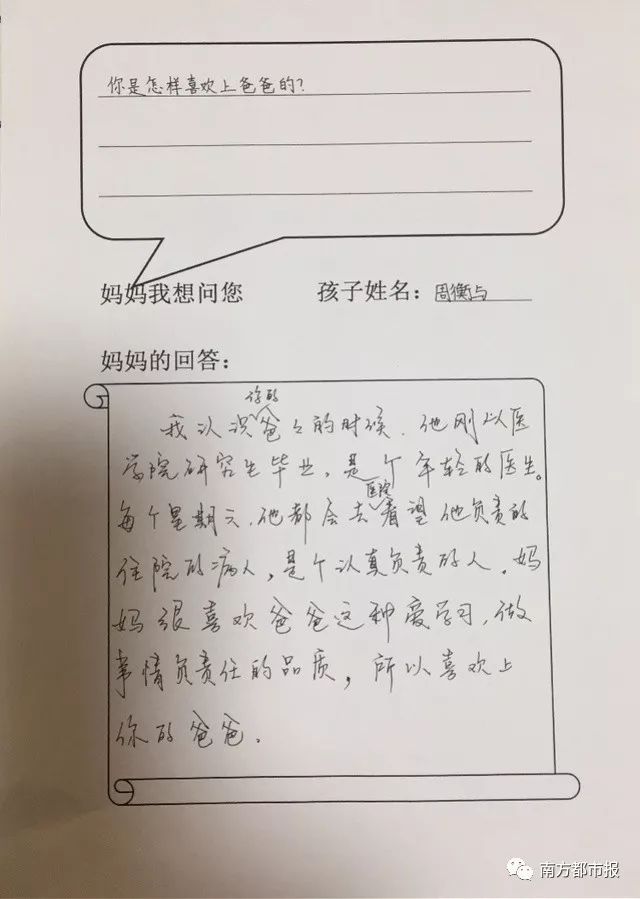 你是怎样喜欢上爸爸的?
妈妈我想问您 孩子姓名：周衡与
妈妈的回答：
我认识你的爸爸的时候，他刚从医
学院研究生毕业，是个年轻的医生。
每个星期六，他都会去医院看望他负责的
住院的病人，是个认真负责的人。妈
妈很喜欢爸爸这种爱学习，做
事情负责任的品质，所以喜欢上
你的爸爸。
南方都市报